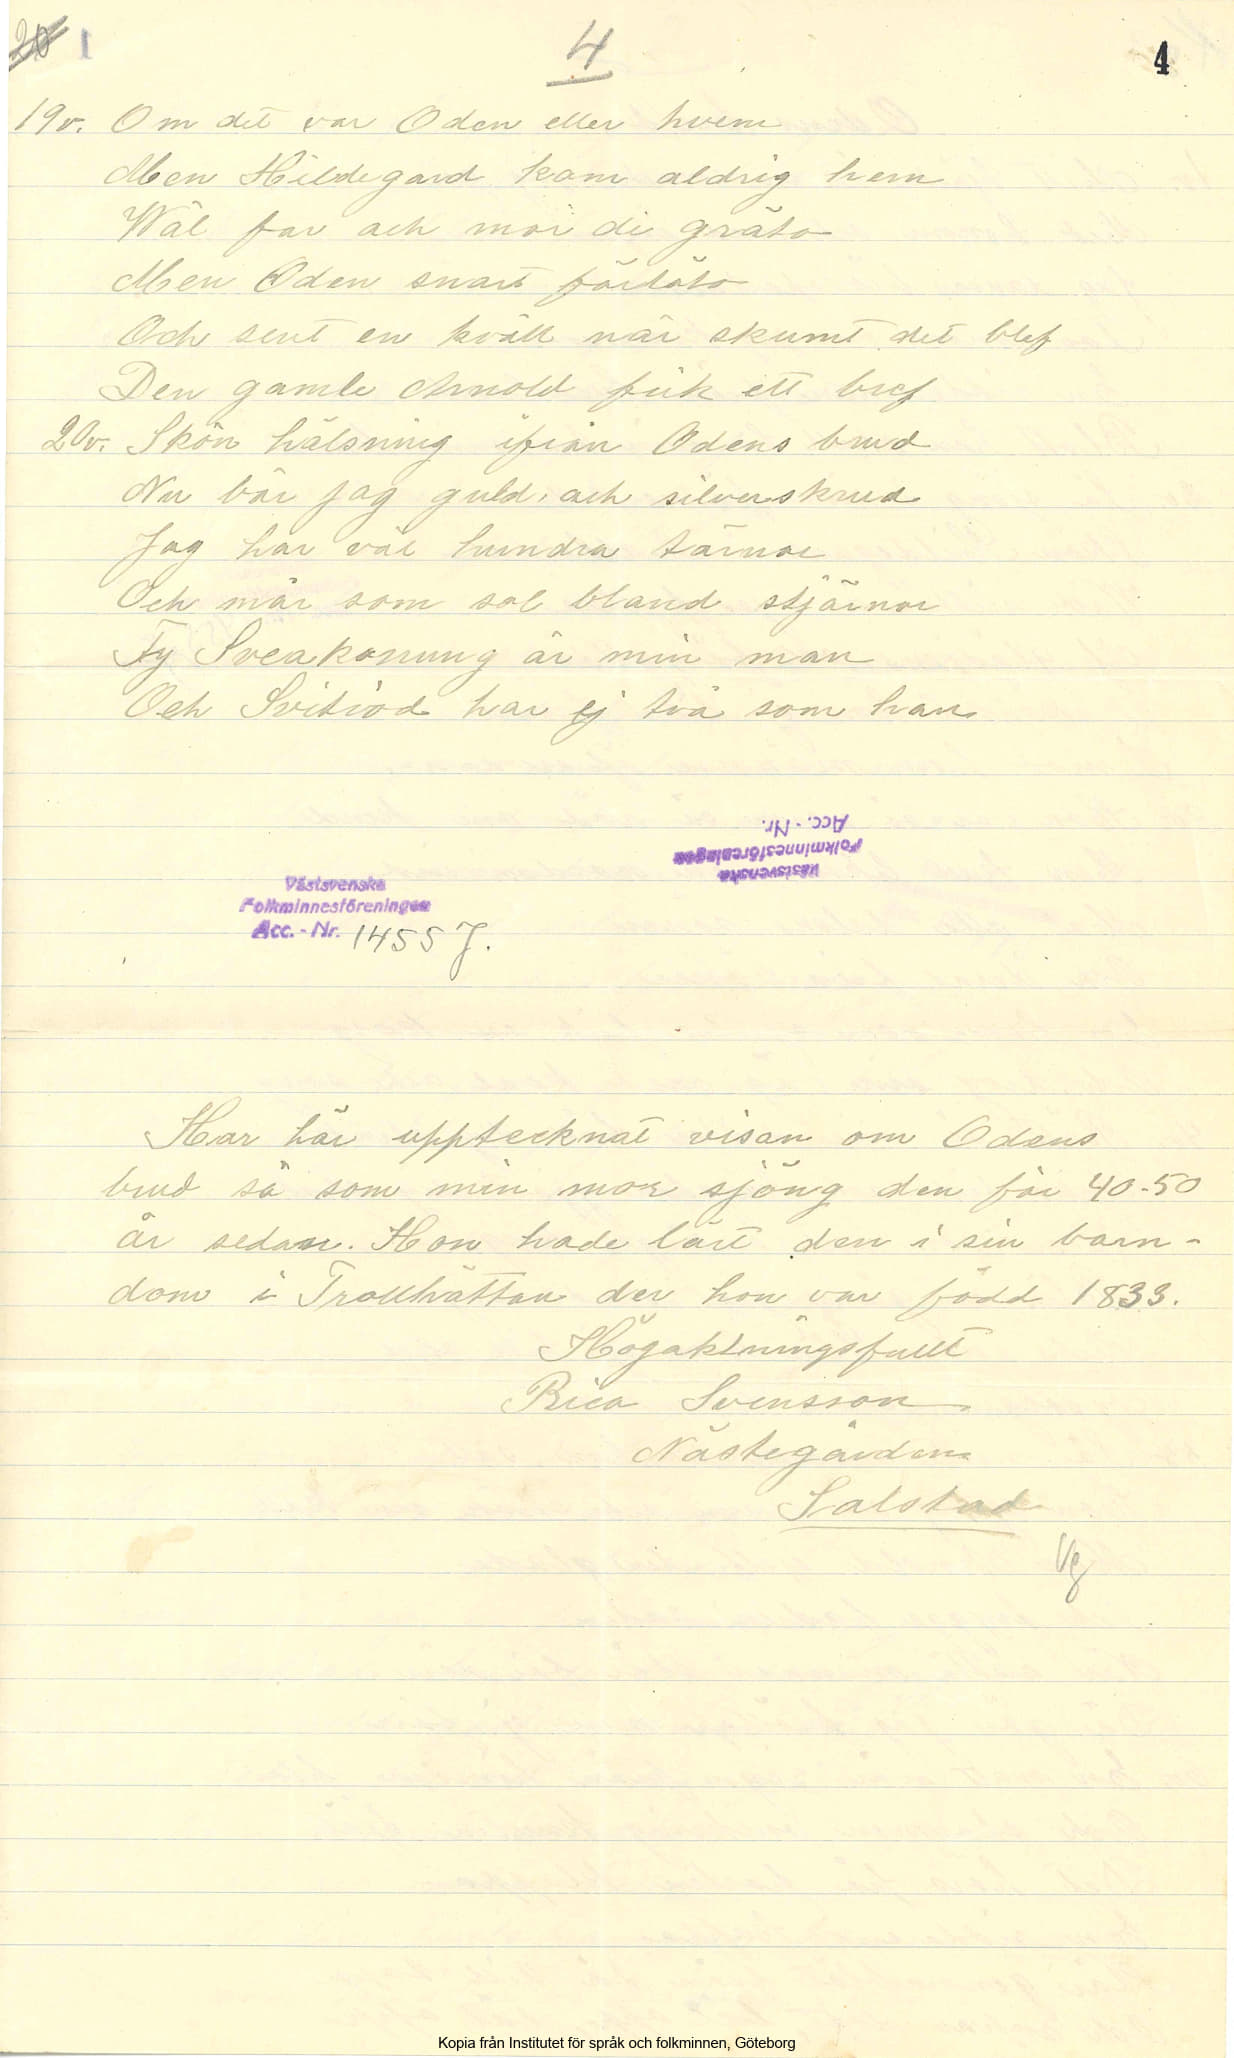 20 1
4
4
19v. Om det var Oden eller hvem
Men Hildegard kom aldrig hem
Wäl far och mor di gräto
Men Oden snart förläto
Och sent en kväll när skumt det blef
Den gamle Arnold fick ett bref
20v. Skön hälsning ifrån Odens brud
Nu bär jag guld, och silverskrud
Jag har väl hundra tärnor
Och mår som sol bland stjärnor
Ty Sveakonung är min man
Och Svitiod har ej två som han
Västsvenska
Folkminnesföreningen
Acc. - Nr.
Västsvenska
Folkminnesföreningen
Acc. - Nr. 1455 J.
Har här upptecknat visan om Odens
brud så som min mor sjöng den för 40-50
år sedan. Hon hade lärt den i sin barn-
dom i Trollhättan der hon var född 1833.
Högaktningsfullt
Rica Svensson
Nästegården
Salstad
Vg
Kopia från Institutet för språk och folkminnen, Göteborg